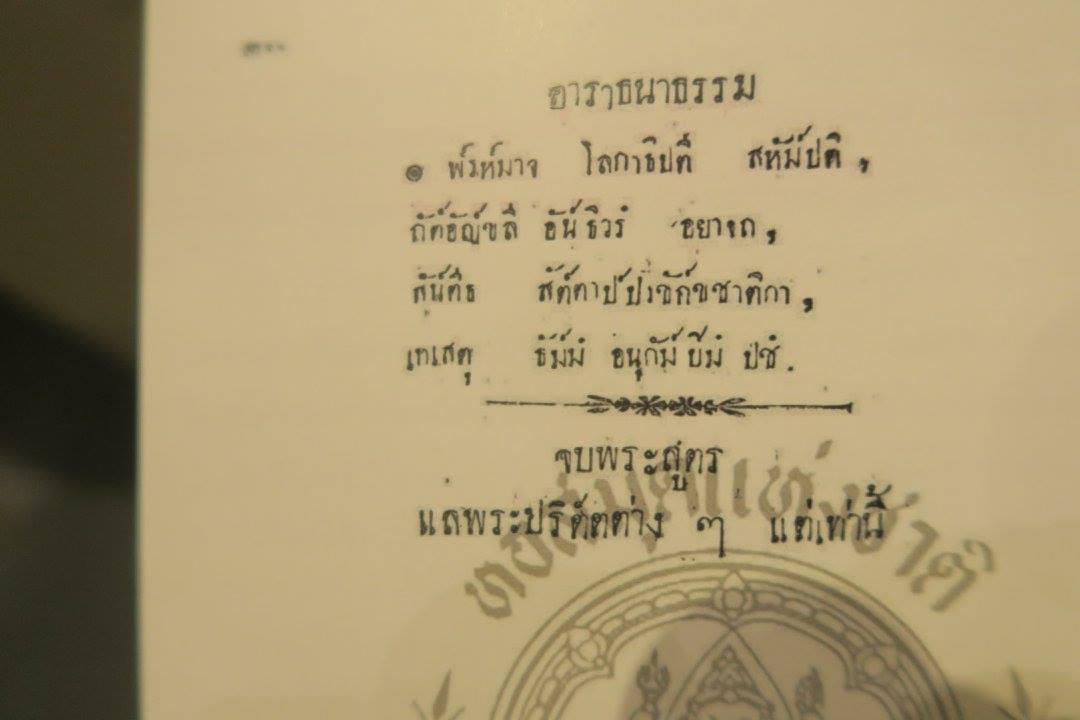 อาราธนาธรรม
๏ พ์รห์มาจ โลกาธิปตี สหัม์ปติ,
กัต์อัญ์ชลี อัน์ธิวรํ อยาจถ,
สัน์ตีธ สัต์ตาป์ปรชัก์ขชาติกา,
เทเสตุ ธัม์มํ อนุกัม์ปีมํ ปชํ.
จบพระสูตร
แลพระปริตัตต่าง ๆ แต่เท่านี้
หอสมุดแห่งชาติ